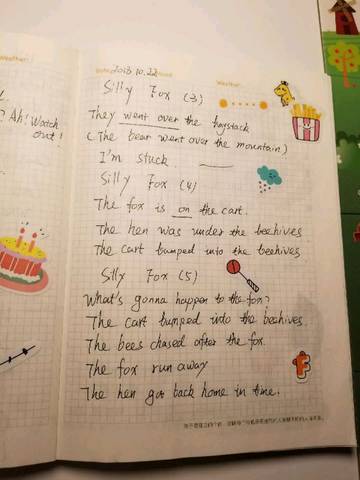 Ah! Watch
out!
Date 2018.10.22
Weather
Silly Fox (3)
They went over the haystack
(The bear went over the mountain)
I'm stuck
Silly Fox (4)
The fox is on the cart.
The hen was under the beehives
The cart bumped into the beehives
Silly Fox (5)
What's gonna happen to the fox?
The cart bumped into the beehives.
The bees chased after the fox.
The fox run away
The hen got back home in time.
F